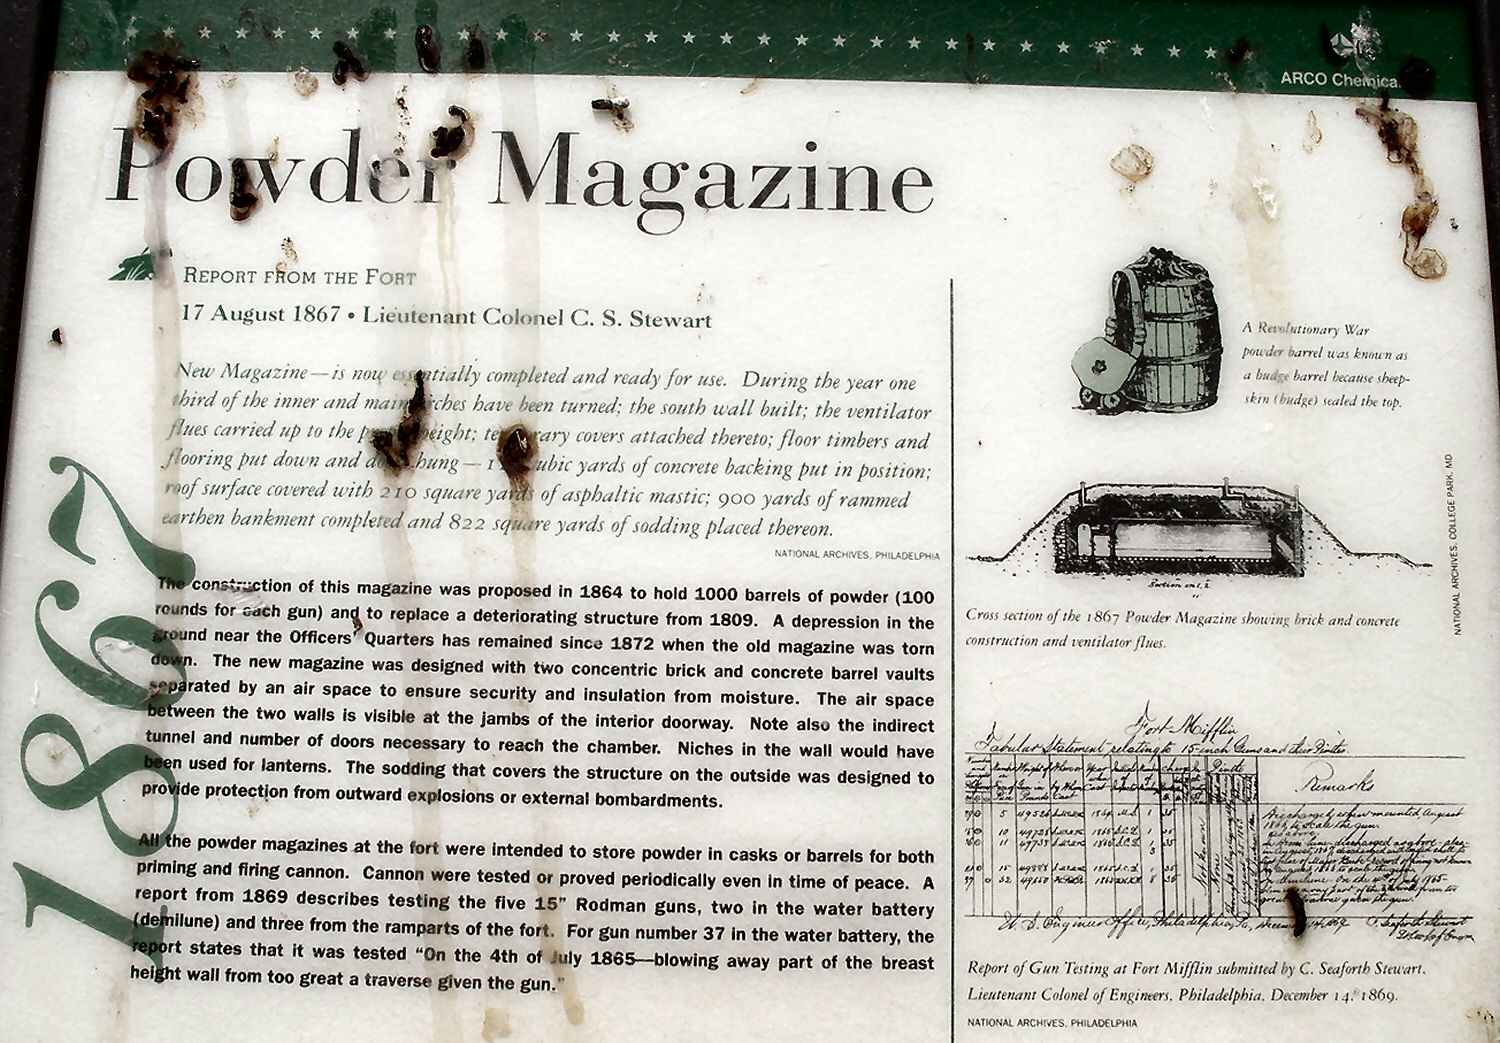 ARCO Chemical
Powder Magazine
REPORT FROM THE FORT
17 August 1867 • Lieutenant Colonel C. S. Stewart
New Magazine — is now essentially completed and ready for use. During the year one
third of the inner and main arches have been turned; the south wall built; the ventilator
flues carried up to the height; temporary covers attached thereto; floor timbers and
flooring put down and hung — cubic yards of concrete backing put in position;
roof surface covered with 210 square yards of asphaltic mastic; 900 yards of rammed
earthen bankment completed and 822 square yards of sodding placed thereon.
NATIONAL ARCHIVES, PHILADELPHIA
1867
The construction of this magazine was proposed in 1864 to hold 1000 barrels of powder (100
rounds for each gun) and to replace a deteriorating structure from 1809. A depression in the
ground near the Officers' Quarters has remained since 1872 when the old magazine was torn
down. The new magazine was designed with two concentric brick and concrete barrel vaults
separated by an air space to ensure security and insulation from moisture. The air space
between the two walls is visible at the jambs of the interior doorway. Note also the indirect
tunnel and number of doors necessary to reach the chamber. Niches in the wall would have
been used for lanterns. The sodding that covers the structure on the outside was designed to
provide protection from outward explosions or external bombardments.
All the powder magazines at the fort were intended to store powder in casks or barrels for both
priming and firing cannon. Cannon were tested or proved periodically even in time of peace. A
report from 1869 describes testing the five 15" Rodman guns, two in the water battery
(demilune) and three from the ramparts of the fort. For gun number 37 in the water battery, the
report states that it was tested "On the 4th of July 1865—blowing away part of the breast
height wall from too great a traverse given the gun."
A Revolutionary War
powder barrel was known as
a budge barrel because sheep-
skin (budge) sealed the top.
Section on 1, 2
Cross section of the 1867 Powder Magazine showing brick and concrete
construction and ventilator flues.
NATIONAL ARCHIVES, COLLEGE PARK, MD
Fort Mifflin
Tabular Statement relating to 15-inch Guns and their Pintles.
Remarks
U. S. Engineer Office, Philadelphia,
Report of Gun Testing at Fort Mifflin submitted by C. Seaforth Stewart,
Lieutenant Colonel of Engineers, Philadelphia, December 14, 1869.
NATIONAL ARCHIVES, PHILADELPHIA